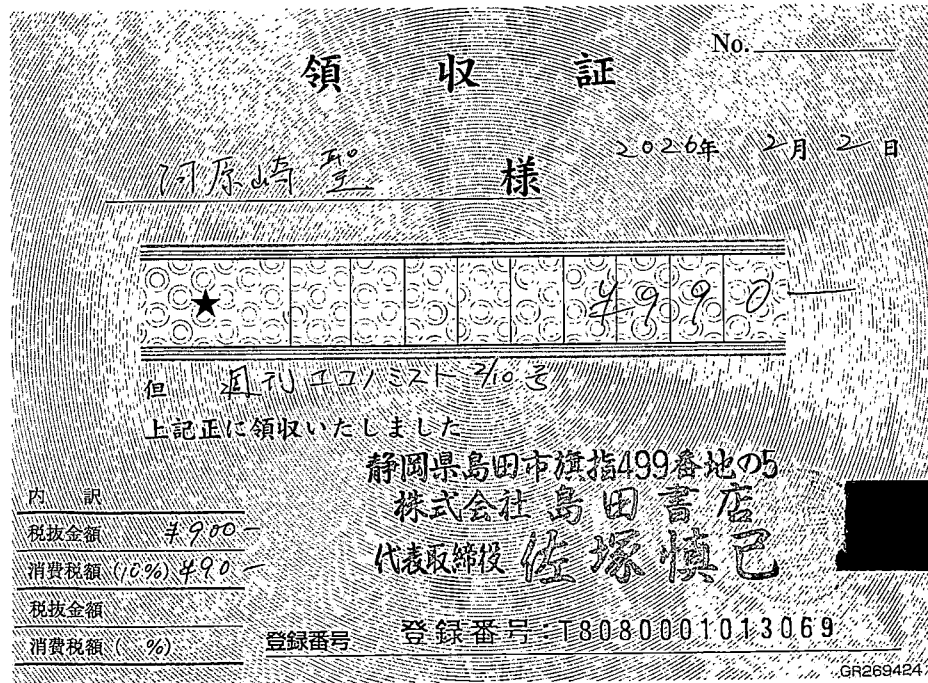 No.
領 収 証
2026年 2月 2日
河原崎 聖 様
★ ¥990
但 週刊エコノミスト 2/10号
上記正に領収いたしました
静岡県島田市旗指499番地の5
株式会社 島田書店
代表取締役 佐塚慎己
内 訳
税抜金額 ¥900-
消費税額(10%) ¥90-
税抜金額
消費税額( %)
登録番号 登録番号:T8080001013069
GR269424